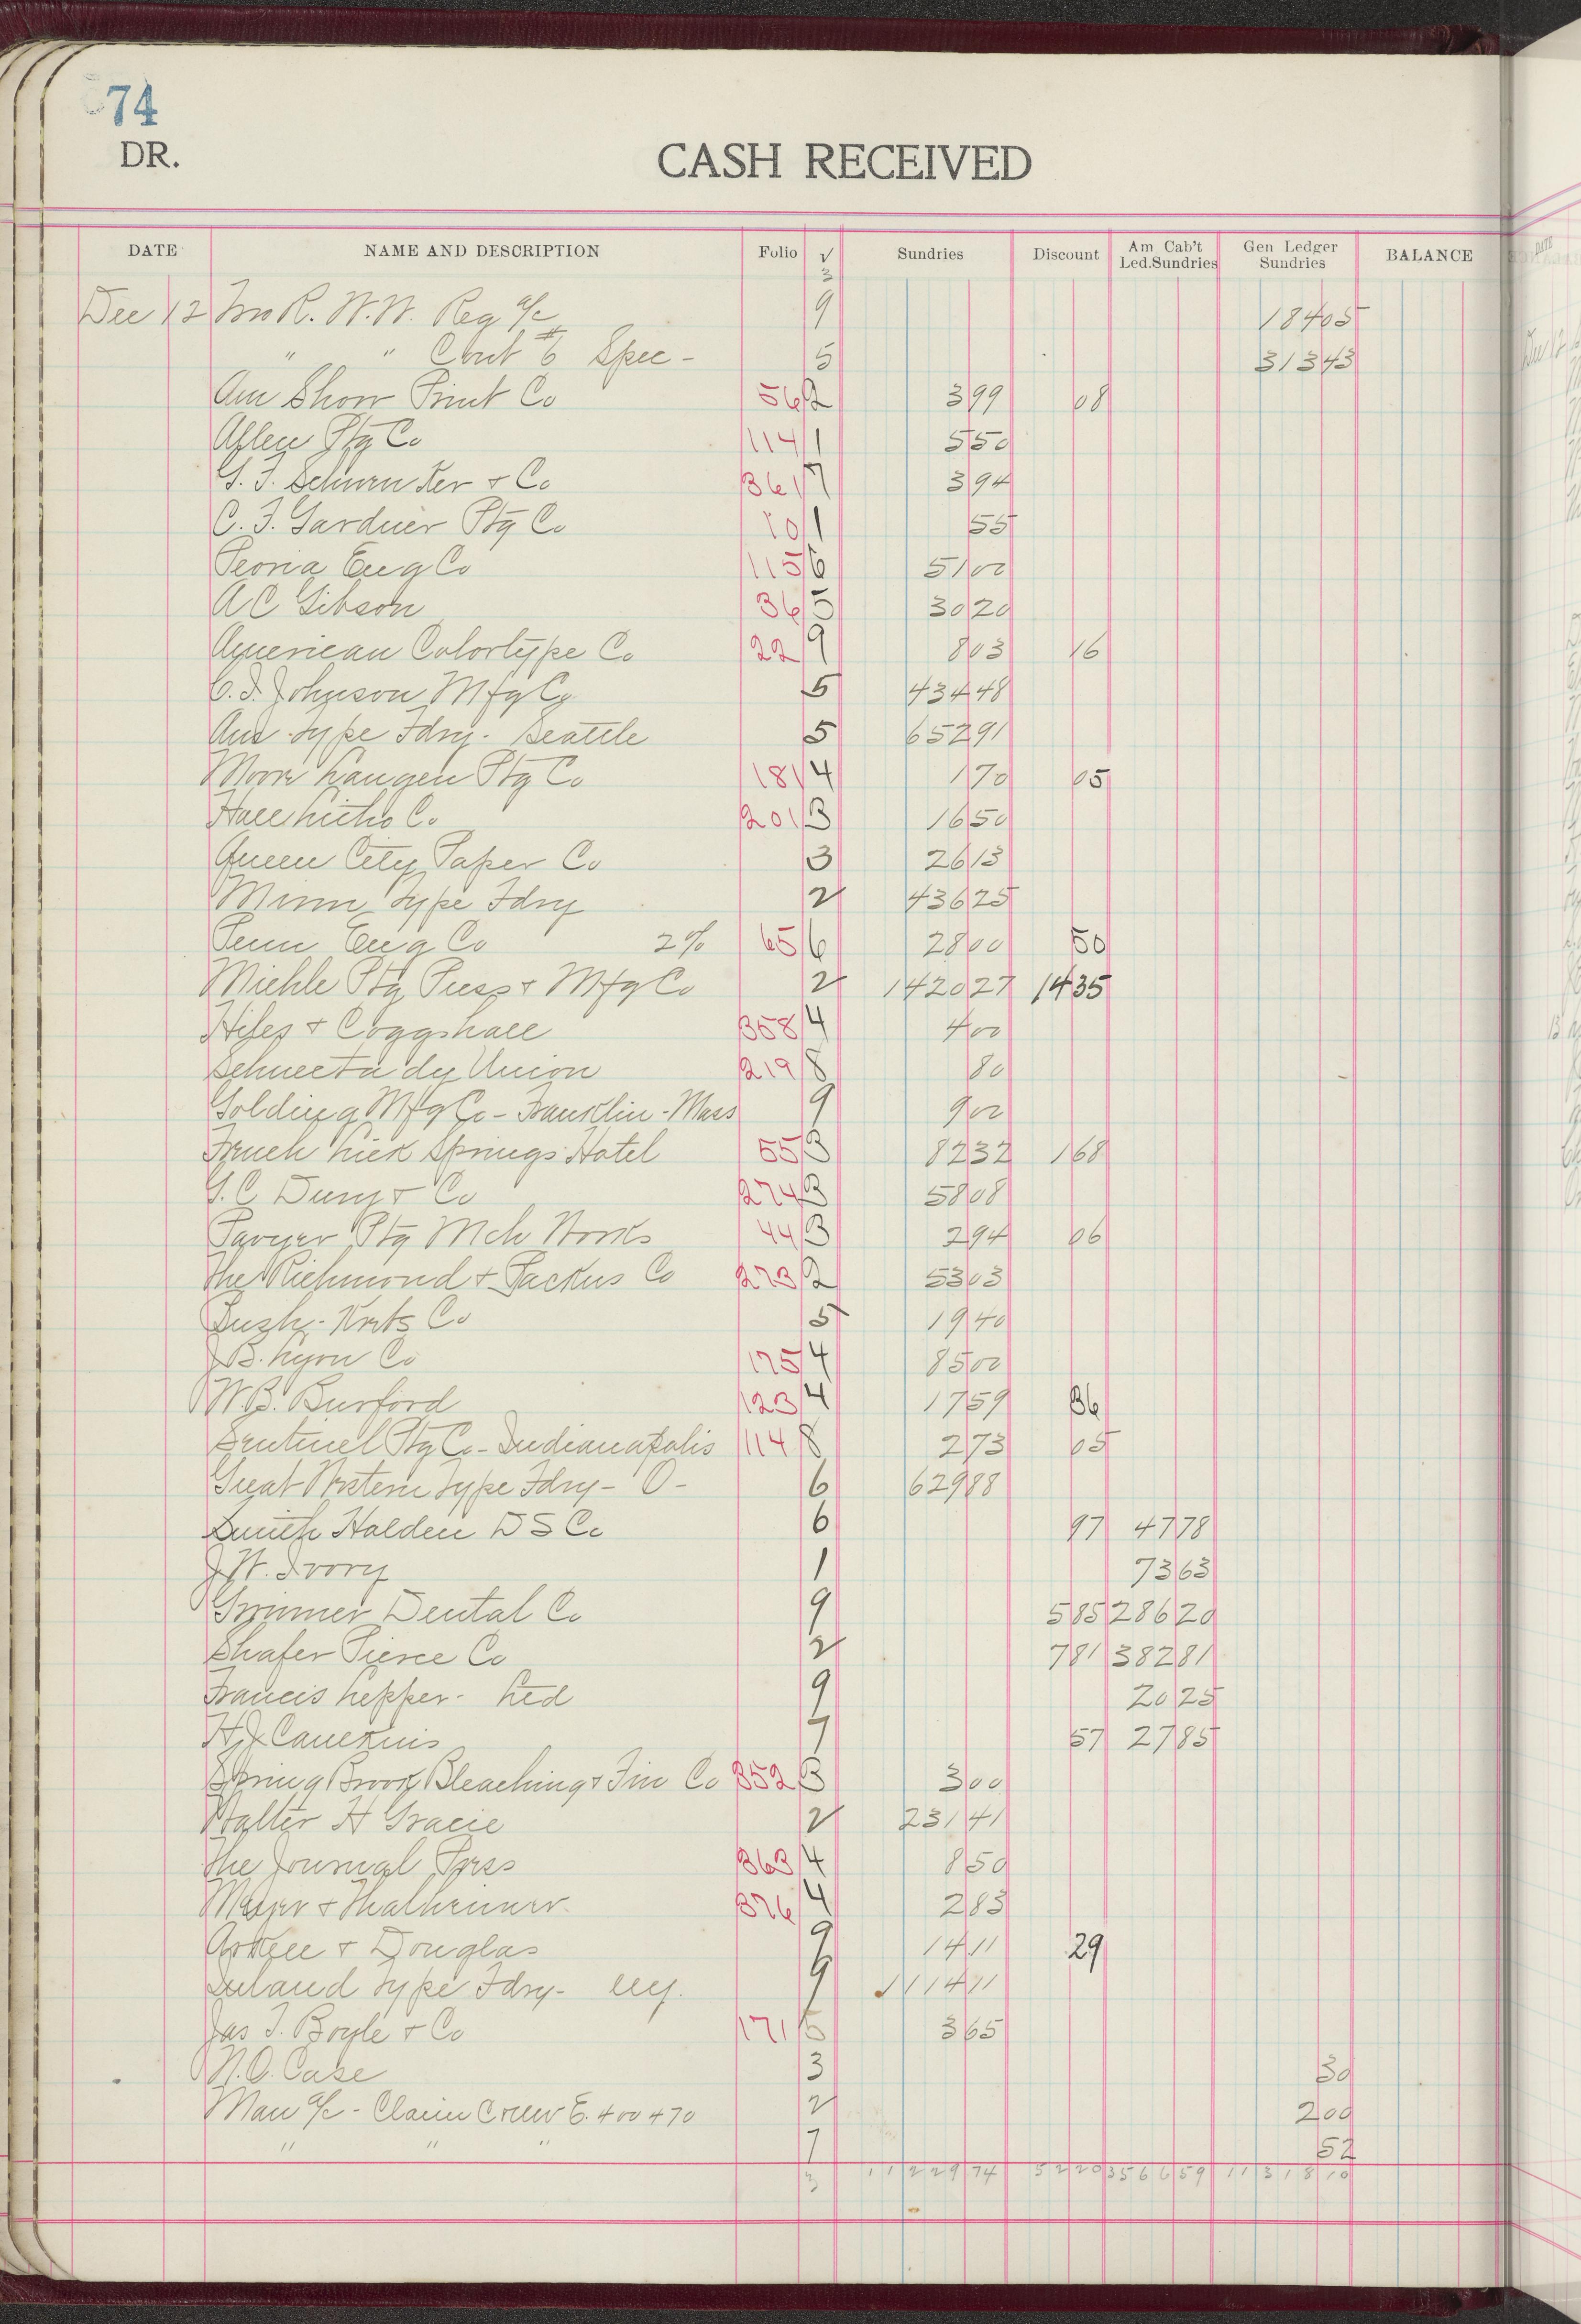 74
DR.
CASH RECEIVED
DATE NAME AND DESCRIPTION Folio √ Sundries Discount Am Cab't Led.Sundries Gen Ledger Sundries BALANCE
3
Dec 12 R. W.W. Reg a/c 9 184 05
" " Cont #6 Spec - 5 313 43
Am Show Print Co 56 2 3 99 08
Allen Ptg Co 114 1 5 50
G. F. Schwenker & Co 361 7 3 94
C. F. Gardner Ptg Co 10 1 55
Peoria Eng Co 115 6 51 00
A C Gibson 36 5 30 20
American Colortype Co 22 9 8 03 16
C. F. Johnson Mfg Co 5 434 48
Am Type Fdry - Seattle 5 652 91
Moore Langen Ptg Co 181 4 1 70 05
Hall Litho Co 201 3 16 50
Queen City Paper Co 3 26 13
Minn Type Fdry 2 436 25
Penn Eng Co 2% 65 6 28 00 50
Miehle Ptg Press & Mfg Co 2 1420 27 14 35
Hiles & Coggshall 358 4 4 00
Schnectady Union 219 8 80
Golding Mfg Co - Franklin - Mass 9 9 00
French Lick Springs Hotel 55 3 82 32 1 68
G. C Dury & Co 274 3 58 08
Pavyer Ptg Mch Works 44 3 2 94 06
The Richmond & Backus Co 273 2 53 03
Bush - Krebs Co 5 19 40
J B. Lyon Co 175 4 85 00
W. B. Burford 123 4 17 59 36
Sentinel Ptg Co - Indianapolis 114 8 2 73 05
Great Western Type Fdry - O - 6 629 88
Smith Holden D S Co 6 97 47 78
J W. Ivory 1 73 63
Grimmer Dental Co 9 5 85 286 20
Shafer Pierce Co 2 7 81 382 81
Francis Lepper - Led 9 20 25
H J Caulkins 7 57 27 85
Spring Brook Bleaching & Fin Co 352 3 3 00
Walter H Gracie 2 231 41
The Journal Press 363 4 8 50
Meyer & Thalheimer 376 4 2 83
Arkell & Douglas 9 14 11 29
Inland Type Fdry - 9 1114 11
Jas T. Boyle & Co 171 5 3 65
N. O. Case 3 30
Man a/c - Claim Crew E. 400 + 70 2 2 00
" " " 7 52
3 11229 74 52 20 3566 59 11318 10